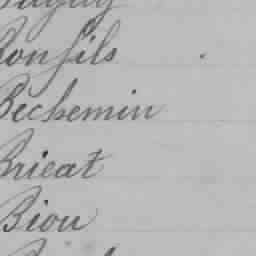 Bonfils
Bechemin
Brieat
Biou